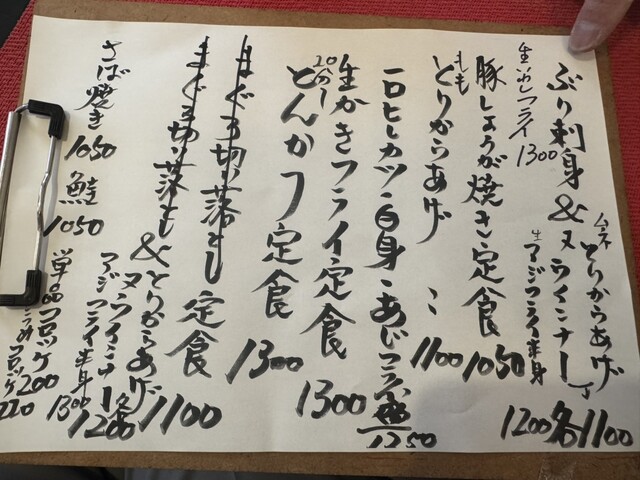 ぶり刺身&
ムネとりからあげ
ヌウインナー
各1100
生アジフライ半身
1200
生いわしフライ
1300
豚しょうが焼き定食
1050
ももとりからあげ 〃
1100
一口ヒレカツ・白身・あじフライ
1250
生かきフライ定食
1300
20分〜
とんかつ定食
1300
まぐろ切り落とし定食
1100
まぐろ切り落とし
&とりからあげ
ヌウインナー
1200
アジフライ半身
1300
さば焼き
1050
鮭
1050
単品コロッケ
200
コロッケ
220